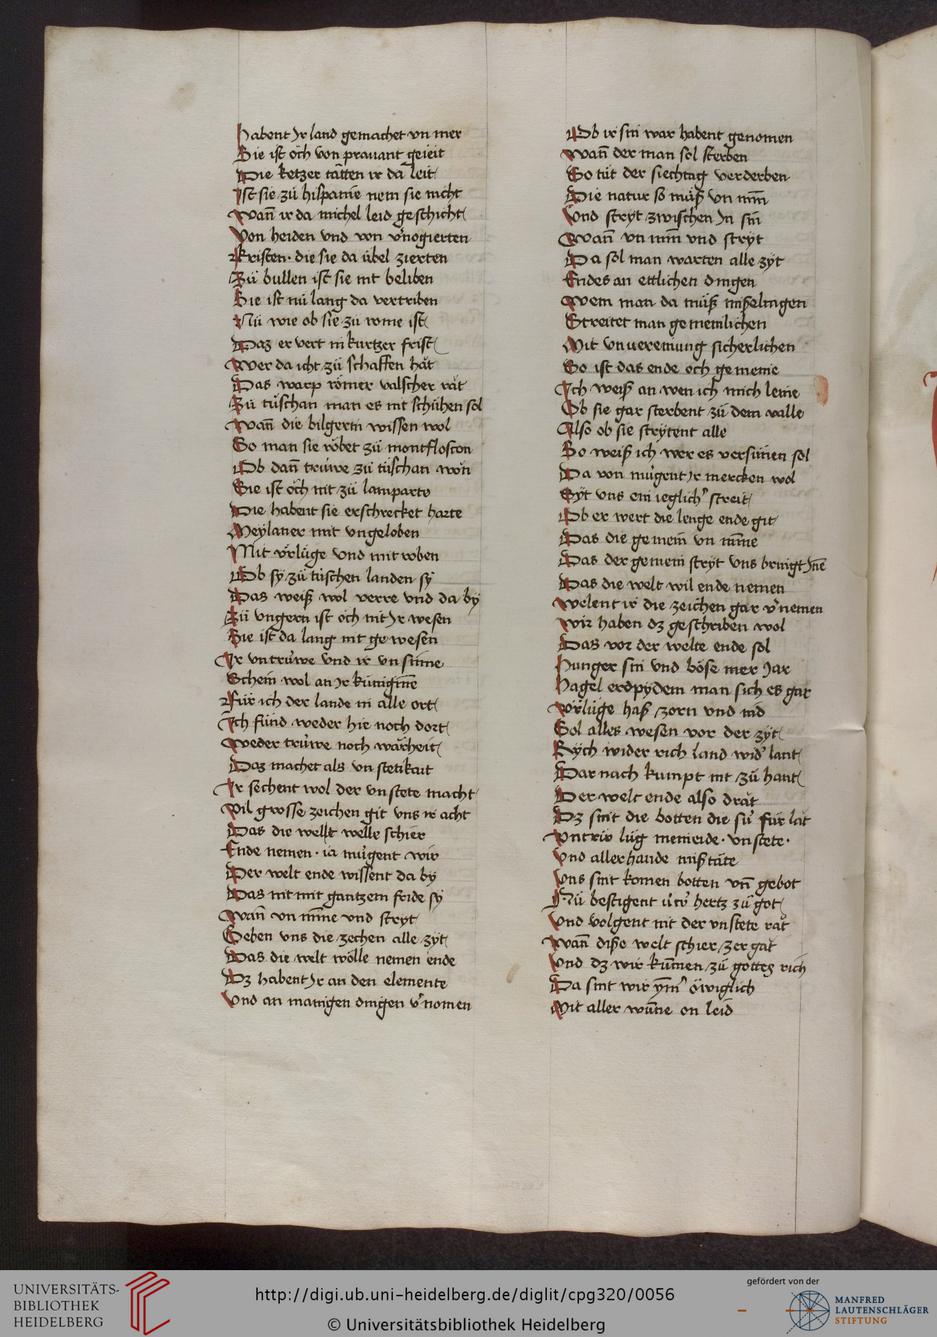 habent Jr land gemachet vn mer
Sie ist öch von prauant geieit
Die ketzer tätten ir da leit
Ist sie zü hispanie nem sie nicht
Wañ ir da michel leid geschicht
Von heiden vnd von v'nogierten
Kristen · die sie da übel zierten
Zü bullen ist sie nit beliben
Sie ist nü lang da vertriben
Nü wie ob sie zü rome ist
Daz er vert in kurtzer frist
Wer da icht zü schaffen hät
Das warp römer valscher rät
Zü tüschan man es nit schühen sol
Wañ die bilgerin wissen wol
So man sie röbet zü montfloscon
Ob dañ trüwe zü tüschan won
Sie ist öch nit zü lamparto
Die habent sie erschrecket harte
Meylaner mit vngeloben
Mit vrlüge vnd mit roben
Ob sy zü tüschen landen sy
Das weiß wol verre vnd da by
Zü vngern ist öch nit Jr wesen
Sie ist da lang nit gewesen
Ir vntrüwe vnd ir vn sinne
Schein wol an Jr küniginne
Für ich der lande in alle ort
Ich fünd weder hie noch dort
Weder trüwe noch wärheit
Daz machet als vn stetikait
Ir sechent wol der vnstete macht
Vil grosse zeichen git vns ir acht
Das die wellt welle schier
Ende nemen · ia mügent wir
Der welt ende wissent da by
Das nit mit gantzem fride sy
Wañ vn mīne vnd stryt
Geben vns die zechen alle zyt
Das die welt wölle nemen ende
Dz habent Jr an den elemente
Vnd an manigen dingen v'nomen
Ob ir sin war habent genomen
Wañ der man sol sterben
So tüt der siechtag verderben
Die natur so müß vn mīn
Vnd stryt zwischen In sin
Wañ vn mīn vnd stryt
Da sol man warten alle zyt
Endes an ettlichen dingen
Wem man da müß misselingen
Streitet man gemeinlichen
Mit vnuereinung sicherlichen
So ist das ende öch gemeine
Ich weiß an wen ich mich leine
Ob sie gar sterbent zü dem valle
Also ob sie strytent alle
So weiß ich wer es versünen sol
Da von mügent Jr mercken wol
Gyt vns ein ieglich' streit
Ob er wert die lenge ende git
Das die gemein vn mīne
Das der gemein stryt vns bringt Jnē
Das die welt wil ende nemen
Welent ir die zeichen gar v'nemen
Wir haben dz geschriben wol
Das vor der welte ende sol
Hunger sin vnd böse mer Jar
Hagel erdpydem man sich es gar
Vrlüge haß zorn vnd nid
Sol alles wesen vor der zyt
Rych wider rich land wid' lant
Dar nach kumpt nit zü hant
Der welt ende also drät
Dz sint die botten die sü für lät
Vntrw lüg meineide · vnstete ·
Vnd allerhande mißtäte
Vns sint komen botten vñ gebot
Nü bestigent ü'w' hertz zü got
Vnd volgent nit der vnstete rät
Wañ diße welt schier zer gät
Vnd dz wir kūmen zü gottes rich
Da sint wir ym̄' öwiglich
Mit aller wūne on leid
UNIVERSITÄTS-
BIBLIOTHEK
HEIDELBERG
http://digi.ub.uni-heidelberg.de/diglit/cpg320/0056
© Universitätsbibliothek Heidelberg
gefördert von der
MANFRED
LAUTENSCHLÄGER
STIFTUNG